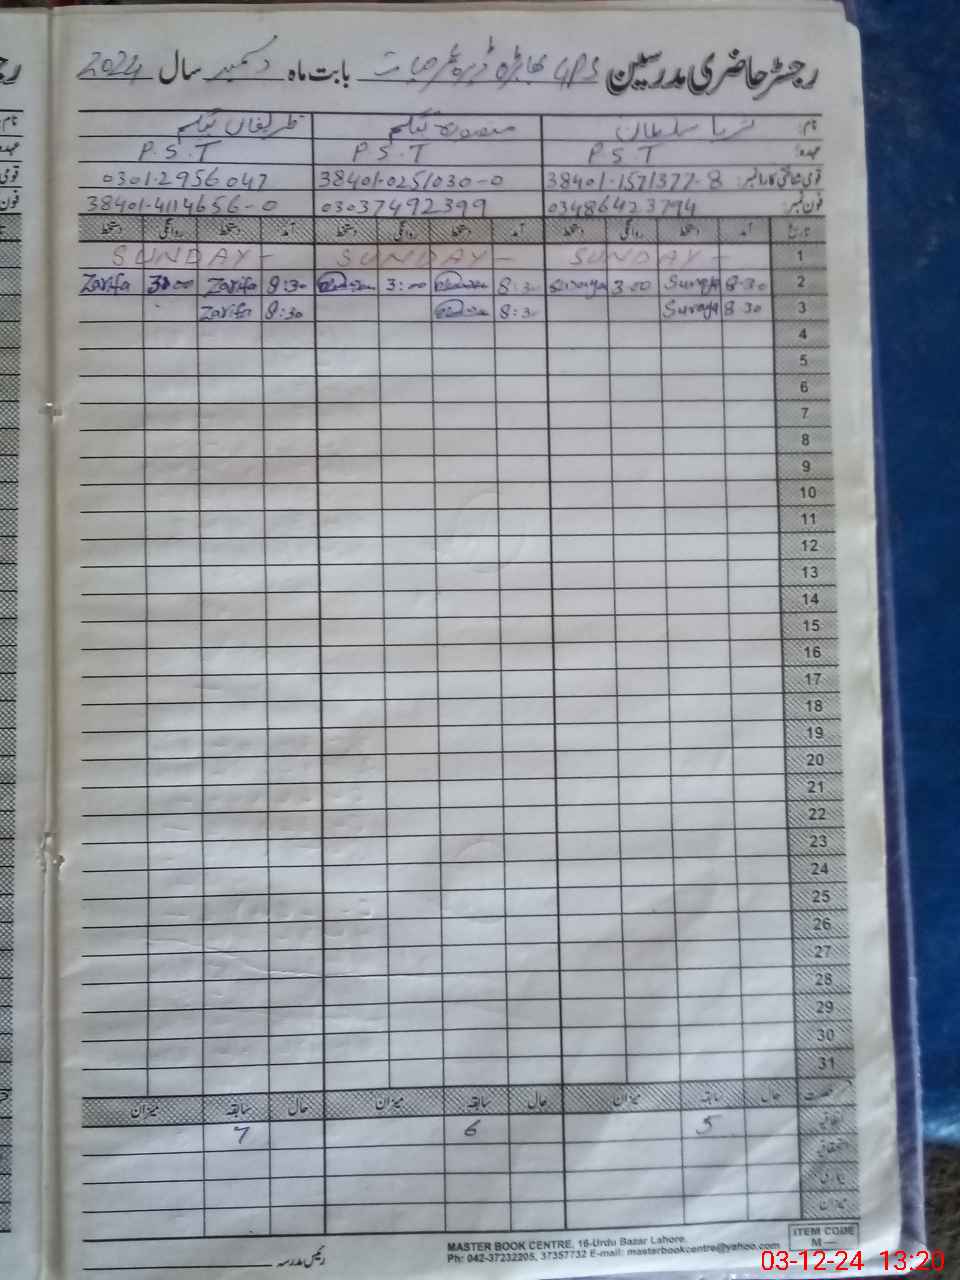 رجسٹر حاضری مدرسین GPS بابت ماہ دسمبر سال 2024
نام: ثریا سلطان منصورہ بیگم ظریفاں بیگم
عہدہ: P.S.T P.S.T P.S.T
قومی شناختی کارڈ نمبر: 38401-1571377-8 38401-0251030-0 0301-2956047
فون نمبر: 03486423794 03037492399 38401-4114656-0
تاریخ آمد دستخط روانگی دستخط آمد دستخط روانگی دستخط آمد دستخط روانگی دستخط
1 SUNDAY - SUNDAY - SUNDAY -
2 8-30 Suraya 3.00 Suraya 8:30 3:00 8:30 Zarifa 3:00 Zarifa
3 8-30 Suraya 8:30 8:30 Zarifa
4
5
6
7
8
9
10
11
12
13
14
15
16
17
18
19
20
21
22
23
24
25
26
27
28
29
30
31
رخصت حال سابقہ میزان حال سابقہ میزان حال سابقہ میزان
اتفاقیہ 5 6 7
استحقاقیہ
بیماری
میزان
رئیس مدرسہ
MASTER BOOK CENTRE, 16-Urdu Bazar Lahore.
Ph: 042-37232205, 37357732 E-mail: masterbookcentre@yahoo.com
ITEM CODE
M—
03-12-24 13:20